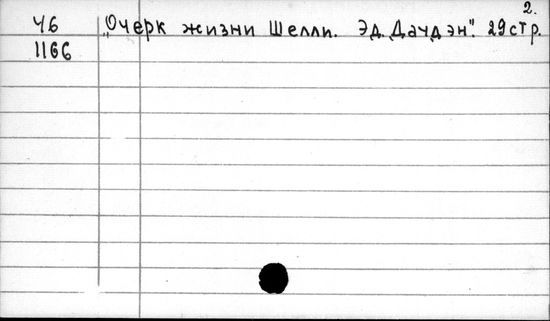 2.
Ч6 „Очерк жизни Шелли. Эд. Даудэн". 29 стр.
1166